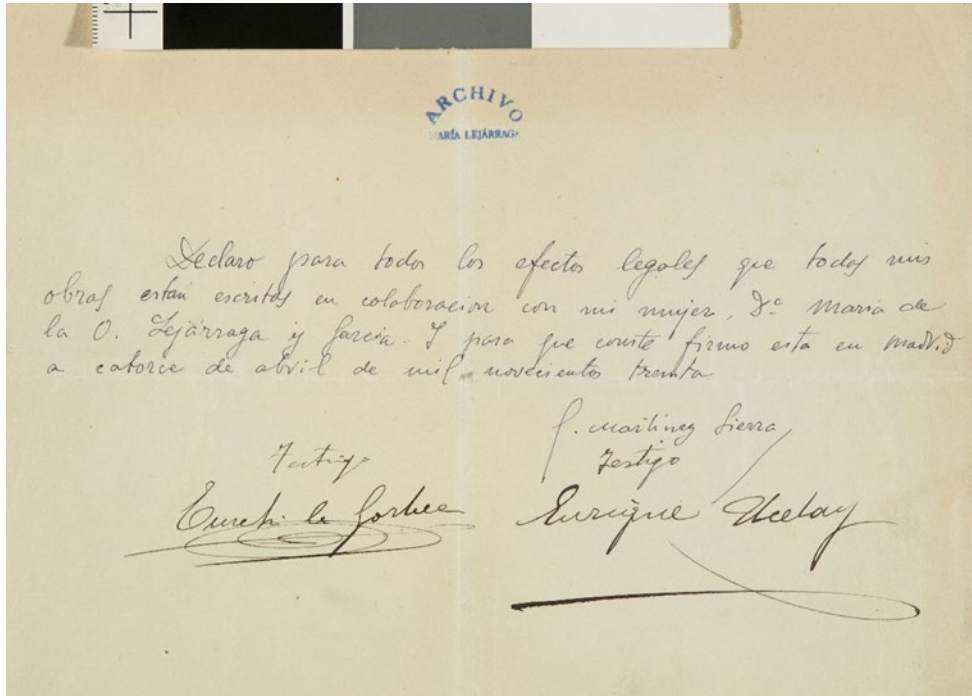 ARCHIVO
MARÍA LEJÁRRAGA
Declaro para todos los efectos legales que todas mis
obras están escritas en colaboracion con mi mujer, Dª Maria de
la O. Lejárraga y Garcia. Y para que conste firmo esta en Madrid
a catorce de abril de mil novecientos treinta
G. Martinez Sierra
Testigo
Testigo
Eusebio de Gorbea
Enrique Ucelay